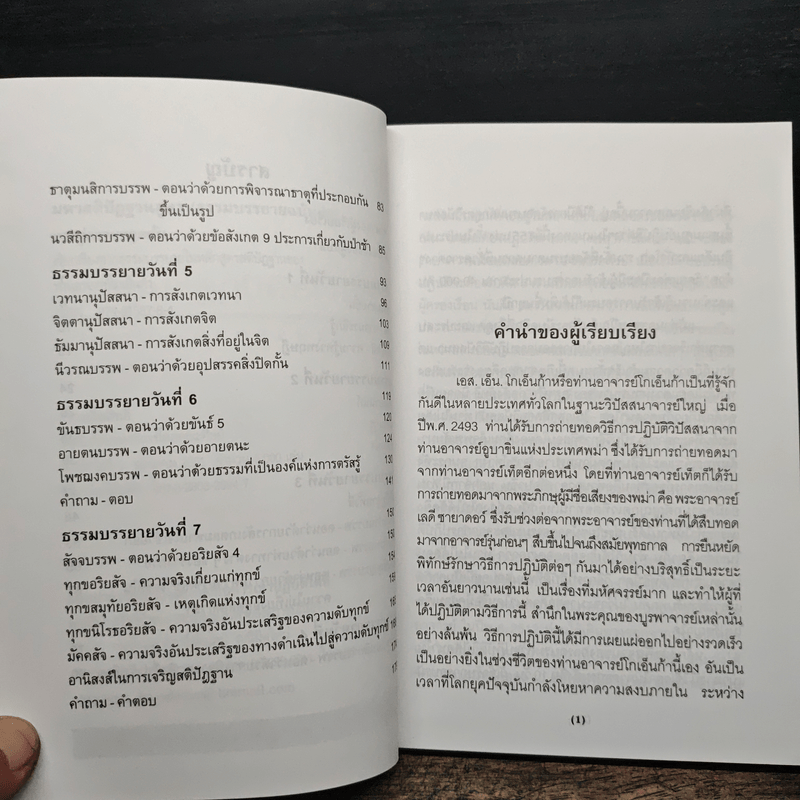 ธาตุมนสิการบรรพ - ตอนว่าด้วยการพิจารณาธาตุที่ประกอบกัน
ขึ้นเป็นรูป 83
นวสีถิการบรรพ - ตอนว่าด้วยข้อสังเกต 9 ประการเกี่ยวกับป่าช้า 85
ธรรมบรรยายวันที่ 5 93
เวทนานุปัสสนา - การสังเกตเวทนา 96
จิตตานุปัสสนา - การสังเกตจิต 103
ธัมมานุปัสสนา - การสังเกตสิ่งที่อยู่ในจิต 109
นีวรณบรรพ - ตอนว่าด้วยอุปสรรคสิ่งปิดกั้น 111
ธรรมบรรยายวันที่ 6 119
ขันธบรรพ - ตอนว่าด้วยขันธ์ 5 120
อายตนบรรพ - ตอนว่าด้วยอายตนะ 124
โพชฌงคบรรพ - ตอนว่าด้วยธรรมที่เป็นองค์แห่งการตรัสรู้
คำถาม - ตอบ
ธรรมบรรยายวันที่ 7
สัจจบรรพ - ตอนว่าด้วยอริยสัจ 4
ทุกขอริยสัจ - ความจริงเกี่ยวแก่ทุกข์
ทุกขสมุทัยอริยสัจ - เหตุเกิดแห่งทุกข์
ทุกขนิโรธอริยสัจ - ความจริงอันประเสริฐของความดับทุกข์
มัคคสัจ - ความจริงอันประเสริฐของทางดำเนินไปสู่ความดับทุกข์
อานิสงส์ในการเจริญสติปัฏฐาน
คำถาม - คำตอบ
คำนำของผู้เรียบเรียง
เอส. เอ็น. โกเอ็นก้าหรือท่านอาจารย์โกเอ็นก้าเป็นที่รู้จัก
กันดีในหลายประเทศทั่วโลกในฐานะวิปัสสนาจารย์ใหญ่ เมื่อ
ปีพ.ศ. 2493 ท่านได้รับการถ่ายทอดวิธีการปฏิบัติวิปัสสนาจาก
ท่านอาจารย์อูบาขิ่นแห่งประเทศพม่า ซึ่งได้รับการถ่ายทอดมา
จากท่านอาจารย์เท็ตอีกต่อหนึ่ง โดยที่ท่านอาจารย์เท็ตก็ได้รับ
การถ่ายทอดมาจากพระภิกษุผู้มีชื่อเสียงของพม่า คือ พระอาจารย์
เลดี ซายาดอว์ ซึ่งรับช่วงต่อจากพระอาจารย์ของท่านที่ได้สืบทอด
มาจากอาจารย์รุ่นก่อนๆ สืบขึ้นไปจนถึงสมัยพุทธกาล การยืนหยัด
พิทักษ์รักษาวิธีการปฏิบัติต่อๆ กันมาได้อย่างบริสุทธิ์เป็นระยะ
เวลาอันยาวนานเช่นนี้ เป็นเรื่องที่มหัศจรรย์มาก และทำให้ผู้ที่
ได้ปฏิบัติตามวิธีการนี้ สำนึกในพระคุณของบูรพาจารย์เหล่านั้น
อย่างล้นพ้น วิธีการปฏิบัตินี้ได้มีการเผยแผ่ออกไปอย่างรวดเร็ว
เป็นอย่างยิ่งในช่วงชีวิตของท่านอาจารย์โกเอ็นก้านี้เอง อันเป็น
เวลาที่โลกยุคปัจจุบันกำลังโหยหาความสงบภายใน ระหว่าง
(1)